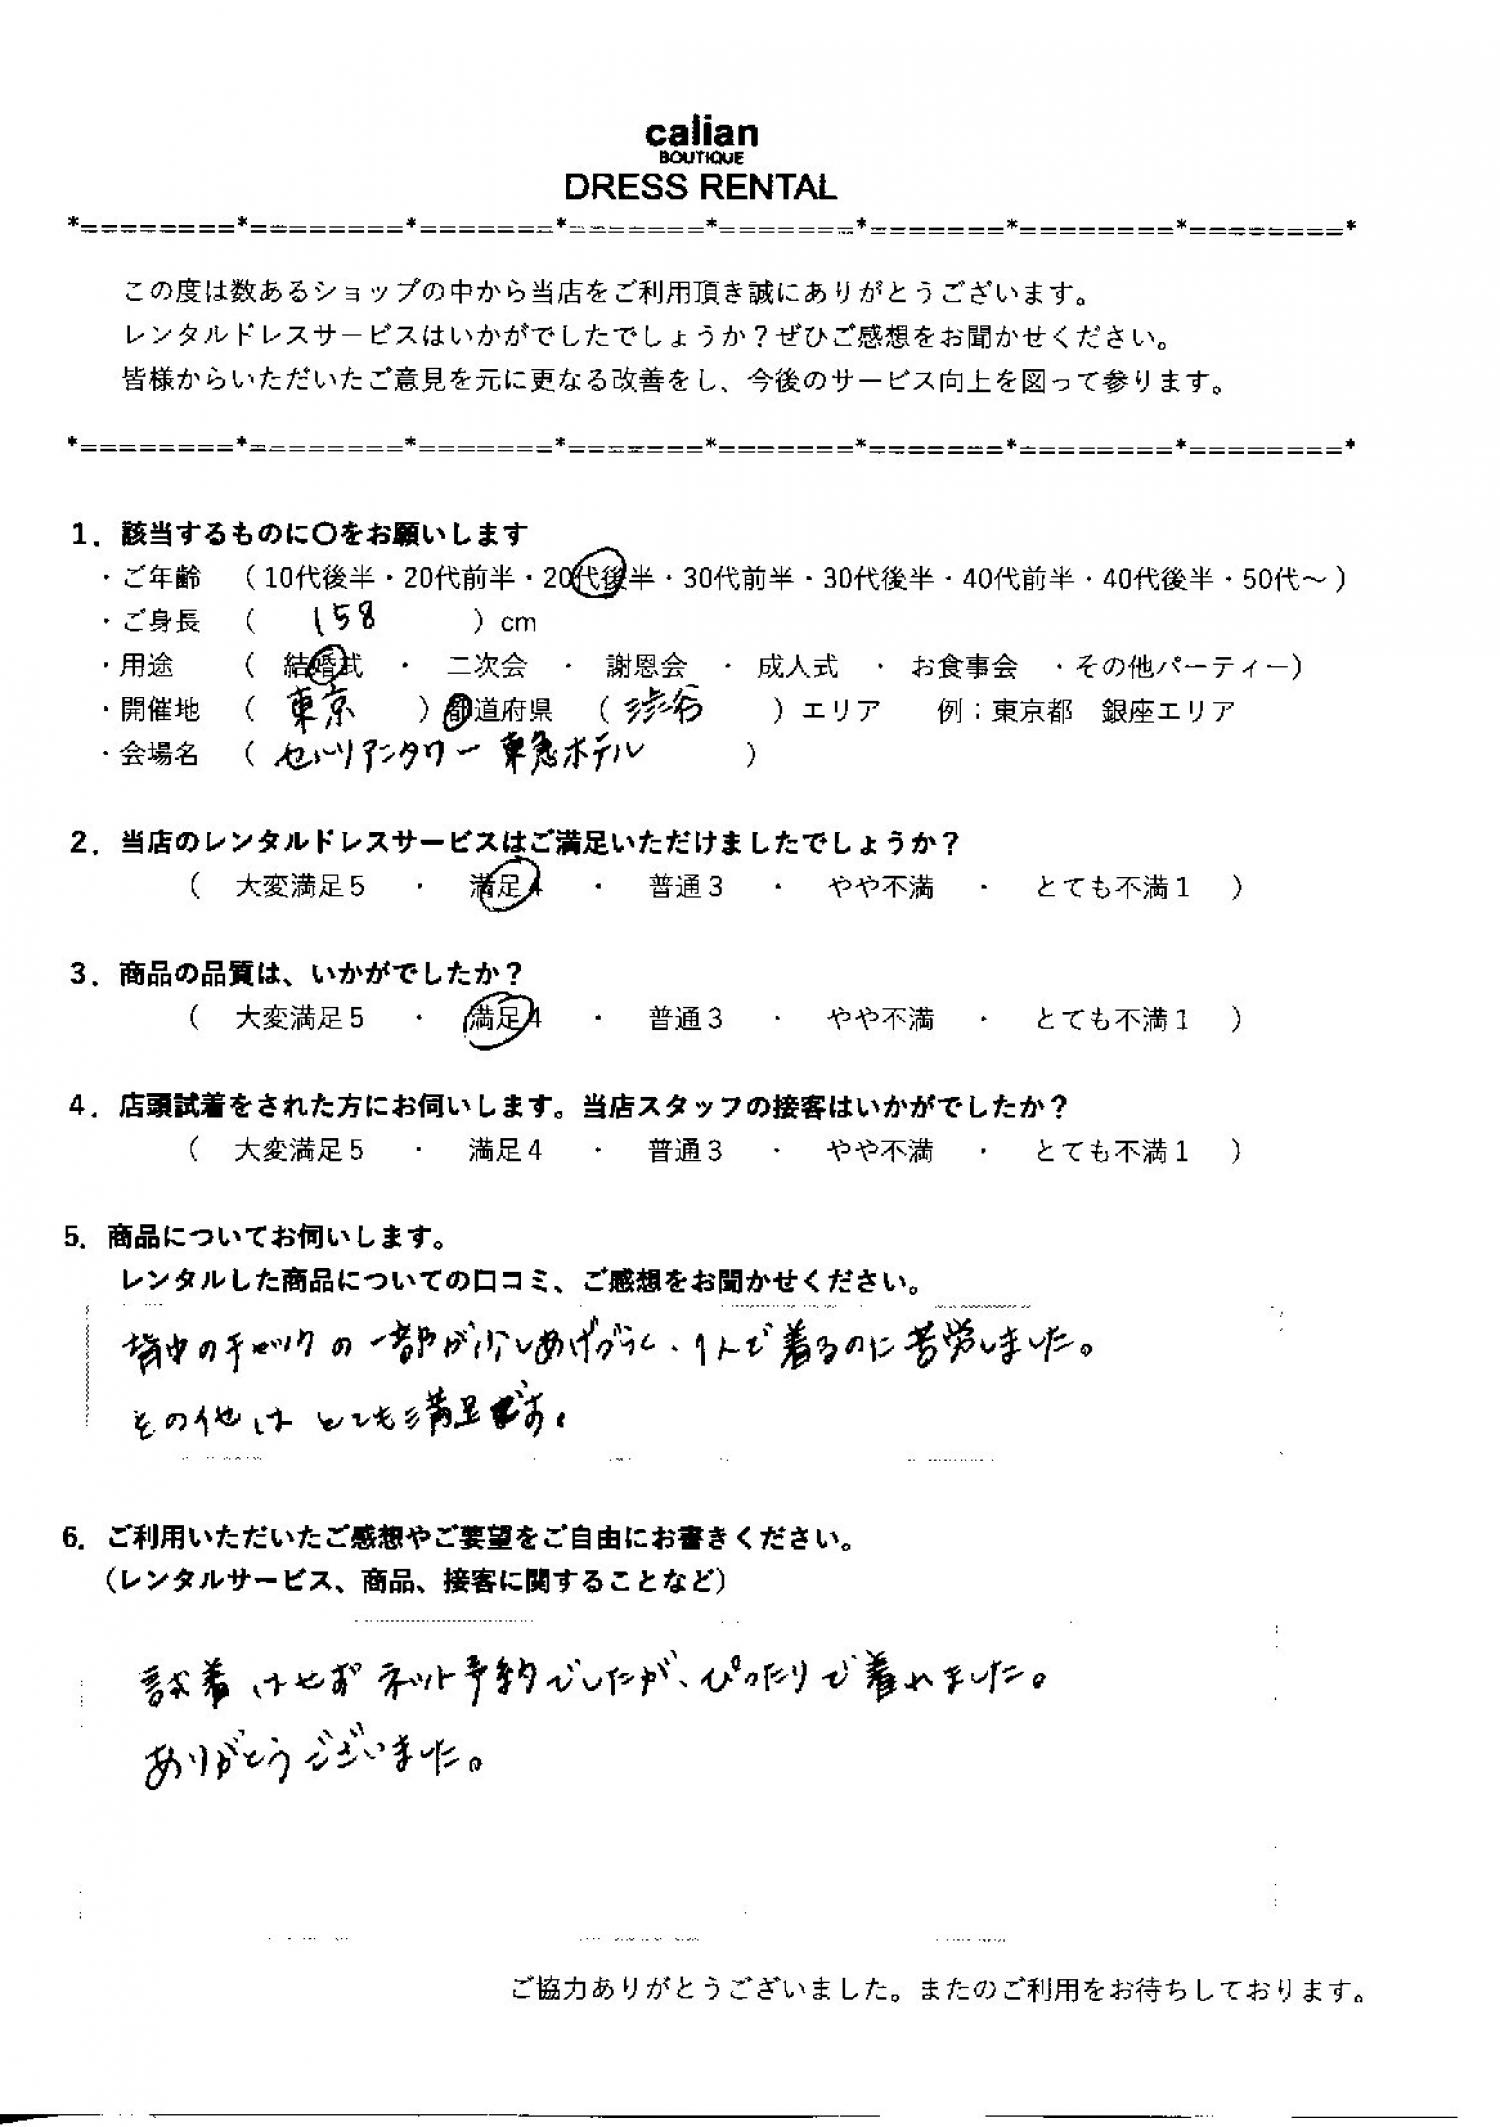 calian
BOUTIQUE
DRESS RENTAL
*========*========*=======*=======*=======*=======*========*========*
この度は数あるショップの中から当店をご利用頂き誠にありがとうございます。
レンタルドレスサービスはいかがでしたでしょうか？ぜひご感想をお聞かせください。
皆様からいただいたご意見を元に更なる改善をし、今後のサービス向上を図って参ります。
*========*========*=======*=======*=======*=======*========*========*
1．該当するものに〇をお願いします
・ご年齢 （ 10代後半・20代前半・20代後半・30代前半・30代後半・40代前半・40代後半・50代～ ）
・ご身長 （ 158 ）cm
・用途 （ 結婚式 ・ 二次会 ・ 謝恩会 ・ 成人式 ・ お食事会 ・その他パーティー）
・開催地 （ 東京 ）都道府県 （ 渋谷 ）エリア 例：東京都 銀座エリア
・会場名 （ セルリアンタワー 東急ホテル ）
2．当店のレンタルドレスサービスはご満足いただけましたでしょうか？
（ 大変満足５ ・ 満足４ ・ 普通３ ・ やや不満 ・ とても不満１ ）
3．商品の品質は、いかがでしたか？
（ 大変満足５ ・ 満足４ ・ 普通３ ・ やや不満 ・ とても不満１ ）
4．店頭試着をされた方にお伺いします。当店スタッフの接客はいかがでしたか？
（ 大変満足５ ・ 満足４ ・ 普通３ ・ やや不満 ・ とても不満１ ）
5．商品についてお伺いします。
レンタルした商品についての口コミ、ご感想をお聞かせください。
背中のチャックの一部が少しあげづらく、1人で着るのに苦労しました。
その他はとても満足です。
6．ご利用いただいたご感想やご要望をご自由にお書きください。
（レンタルサービス、商品、接客に関することなど）
試着はせずネット予約でしたが、ぴったりで着れました。
ありがとうございました。
ご協力ありがとうございました。またのご利用をお待ちしております。